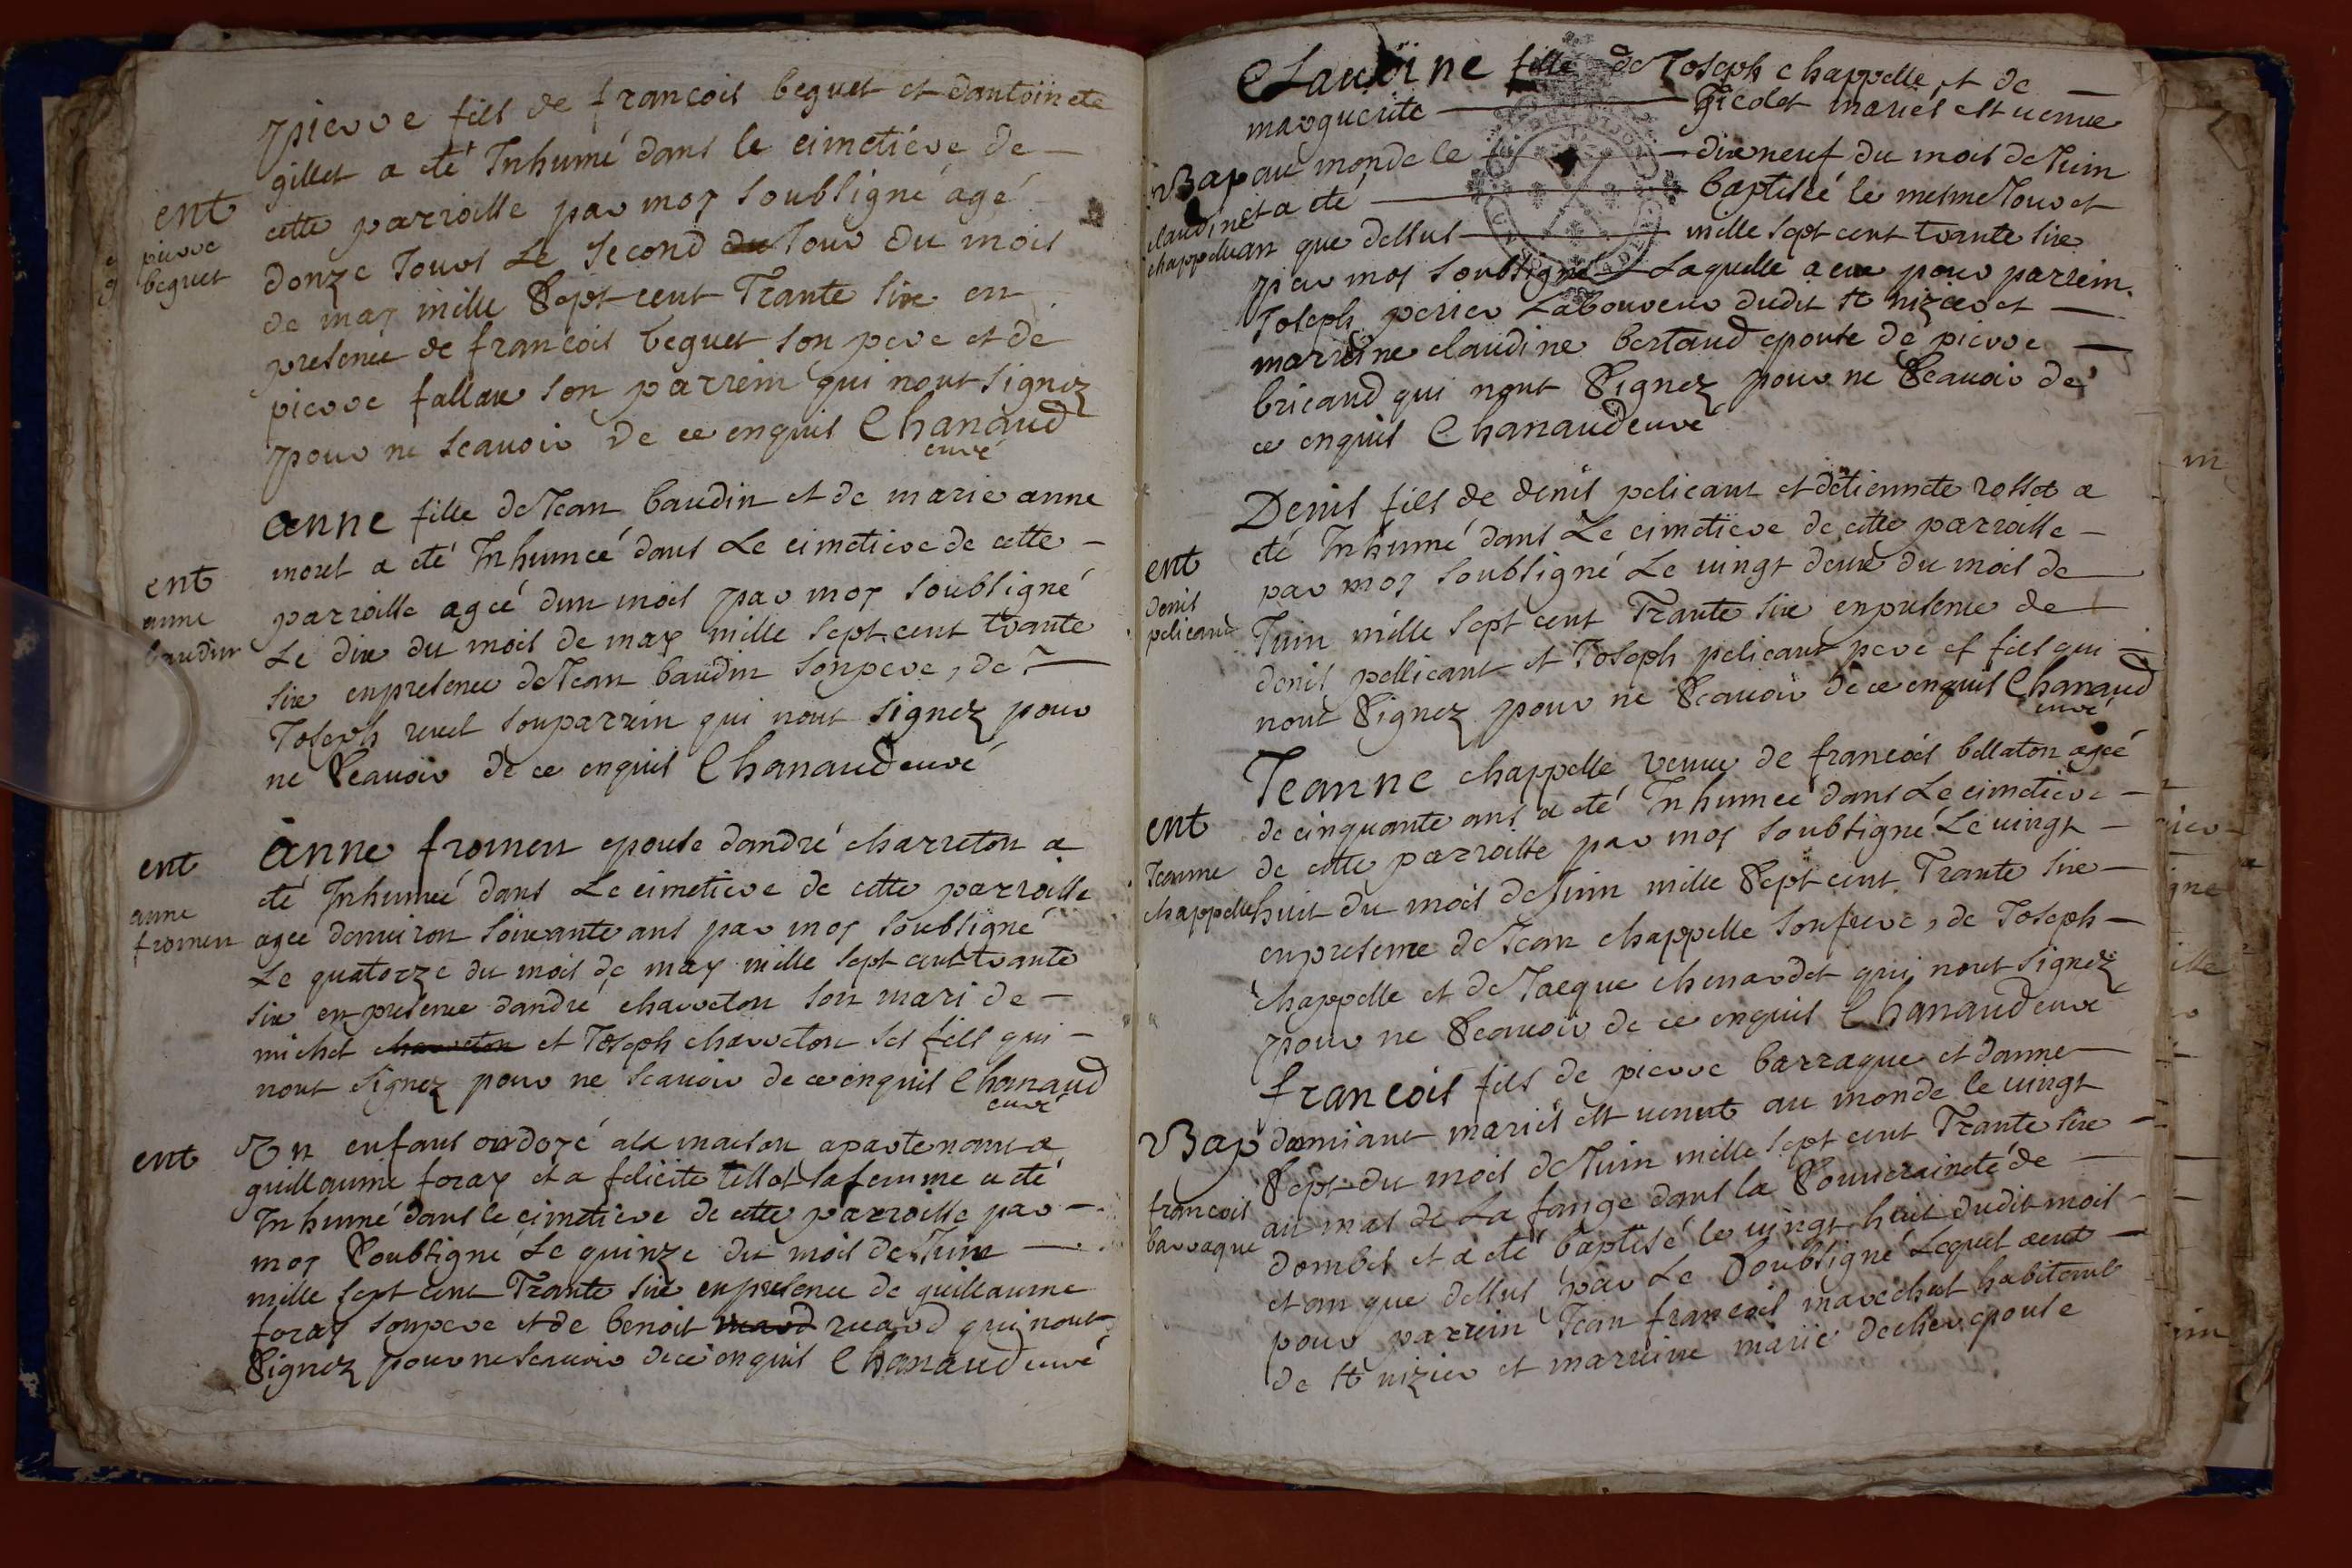 pierre fils de francois beguet et dantoinete
gillet a eté Inhumé dans le cimetiére de
cette parroisse par moy soubsigné agé
donze Jours Le second du Jour du mois
de may mille Sept cent Trante six en
presence de francois beguet son pere et de
pierre fallau son parrein qui nont signez
pour ne scauoir de ce enquis Chanaud
curé
ent
pierre
beguet
anne fille de Jean baudin et de marie anne
morel a eté Inhumeé dans Le cimetiere de cette
parroisse ageé dun mois par moy soubsigné
Le dix du mois de may mille sept cent trante
six enpresence de Jean baudin sonpere, de
Joseph reuel sonparrein qui nont signez pour
ne Scauoir de ce enquis Chanaud curé
ent
anne
baudin
anne fromen epouse dandré charreton a
eté Inhumeé dans Le cimetiere de cette parroisse
ageé denuiron soixante ans par moy soubsigné
Le quatorze du mois de may mille sept cent trante
six en presence dandré charreton son mari de
michel charreton et Joseph charreton ses fils qui
nont signez pour ne scauoir de ce enquis Chanaud
curé
ent
anne
fromen
Un enfans ondoyé ala maison apartenant a
guillaume foray et a felicite tillot sa femme a eté
Inhumé dans le cimetiere de cette parroisse par
moy Soubsigné Le quinze du mois de Juin
mille sept cent Trante six enpresence de guillaume
foray sonpere et de benoit ruard qui nont
Signez pour ne scauoir de ce enquis Chanaud curé
ent
Claudine fille de Joseph chappelle et de
marguerite Nicolet mariés est uenue
au monde le dixneuf du mois de Juin
et a eté baptiseé le mesme Jour et
an que dessus mille sept cent trante six
par moy soubsigné Laquelle a eue pour parrein
Joseph perier Laboureur dudit st nizier et
marreine claudine bertaud epouse de pierre
bricaud qui nont Signez pour ne Scauoir de
ce enquis Chanaud curé
Bap
claudine
chappelle
Denis fils de denis pelicant et detiennete rosset a
eté Inhumé dans Le cimetiere de cette parroisse
par moy soubsigné Le uingt deux du mois de
Juin mille sept cent Trante six enpresence de
denis pellicant et Joseph pelicant pere et fils qui
nont Signez pour ne Scauoir de ce enquis Chanaud
curé
ent
denis
pelicand
Jeanne chappelle veuue de francois bellaton ageé
de cinquante ans a eté Inhumeé dans Le cimetiere
de cette parroisse par moy soubsigné Le uingt
huit du mois de Juin mille Sept cent Trante six
enpresence de Jean chappelle son frere, de Joseph
chappelle et de Jacque chenardet qui nont signez
pour ne Scauoir de ce enquis Chanaud curé
ent
Jeanne
chappelle
francois fils de pierre barraque et danne
damiant mariés est uenut au monde le uingt
Sept du mois de Juin mille sept cent Trante six
au mas de La fange dans la Souueraineté de
dombes et a eté baptisé le uingt huit dudit mois
et an que dessus par Le Soubsigné Lequel aeut
pour parrein Jean francois marechal habitant
de st nizier et marreine marie declier epouse
Bap
francois
barraque